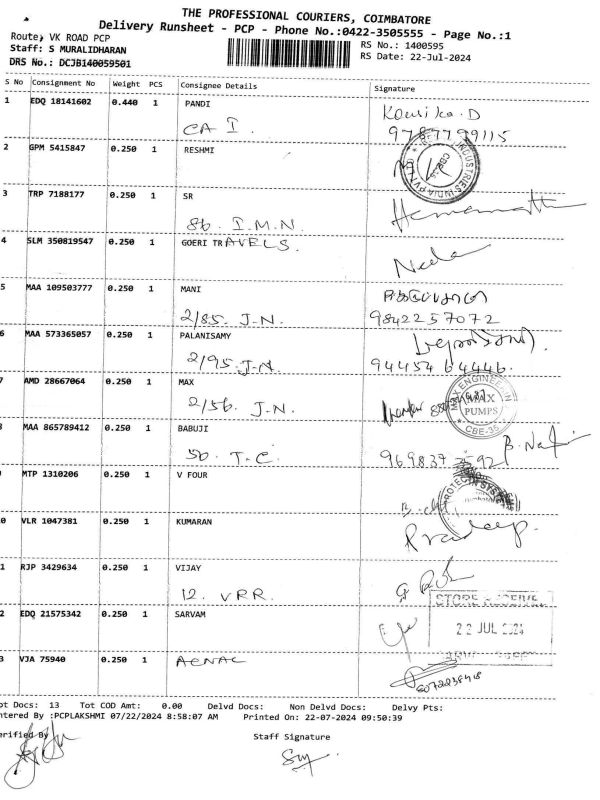 THE PROFESSIONAL COURIERS, COIMBATORE
Delivery Runsheet - PCP - Phone No.:0422-3505555 - Page No.:1
Route: VK ROAD PCP
RS No.: 1400595
Staff: S MURALIDHARAN
RS Date: 22-Jul-2024
DRS No.: DCJB140059501
S No Consignment No Weight PCS Consignee Details Signature
1 EDQ 18141602 0.440 1 PANDI
CA I. 9787799115
2 GPM 5415847 0.250 1 RESHMI
3 TRP 7188177 0.250 1 SR
8b. I.M.N.
4 SLM 350819547 0.250 1 GOERI TRAVELS.
5 MAA 109503777 0.250 1 MANI
2/85. J.N. 9842257072
6 MAA 573365057 0.250 1 PALANISAMY
2/95. J.N. 94454 64446.
7 AMD 28667064 0.250 1 MAX
2/56. J.N.
MAX ENGINEERIN
MAX
PUMPS
CBE-35
MAA 865789412 0.250 1 BABUJI
5b. T.C.
MTP 1310206 0.250 1 V FOUR
0 VLR 1047381 0.250 1 KUMARAN
Pradeep.
1 RJP 3429634 0.250 1 VIJAY
12. VRR.
2 EDQ 21575342 0.250 1 SARVAM
22 JUL 2024
3 VJA 75940 0.250 1 ACNAC
ot Docs: 13 Tot COD Amt: 0.00 Delvd Docs: Non Delvd Docs: Delvy Pts:
ntered By :PCPLAKSHMI 07/22/2024 8:58:07 AM Printed On: 22-07-2024 09:50:39
erified By Staff Signature